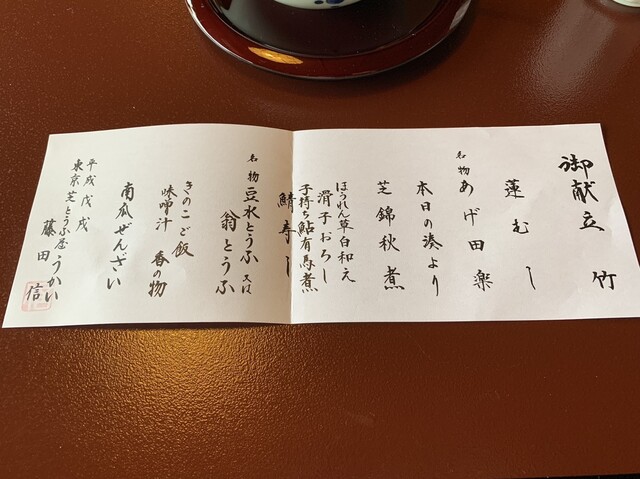 御献立 竹
蓮むし
名物 あげ田楽
本日の湊より
芝錦秋煮
ほうれん草白和え
滑子おろし
子持ち鮎有馬煮
鯖寿し
名物 豆水とうふ 又は
翁とうふ
きのこご飯
味噌汁 香の物
南瓜ぜんざい
平成戊戌
東京芝とうふ屋うかい
藤田 信